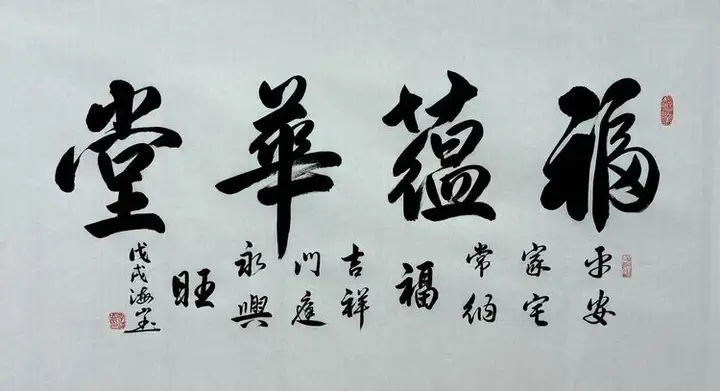 福蘊華堂
平安
家宅
常納
福
吉祥
門庭
永興
旺
戊戌海